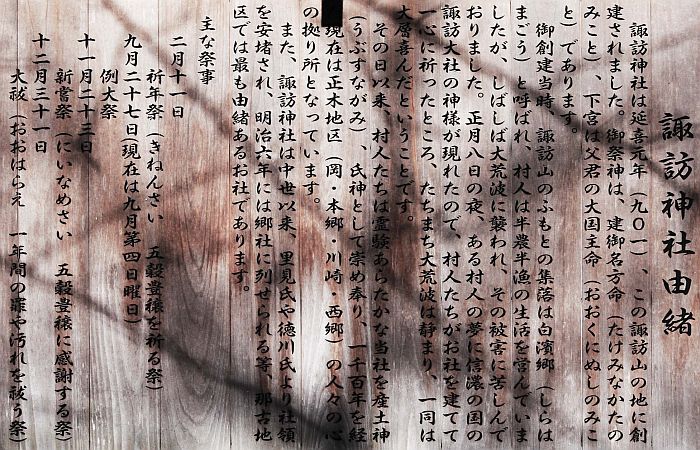 諏訪神社由緒
諏訪神社は延喜元年（九〇一）、この諏訪山の地に創
建されました。御祭神は、建御名方命（たけみなかたの
みこと）、下宮は父君の大国主命（おおくにぬしのみこ
と）であります。
御創建当時、諏訪山のふもとの集落は白濱郷（しらは
まごう）と呼ばれ、村人は半農半漁の生活を営んでいま
したが、しばしば大荒波に襲われ、その被害に苦しんで
おりました。正月八日の夜、ある村人の夢に信濃の国の
諏訪大社の神様が現れたので、村人たちがお社を建てて
一心に祈ったところ、たちまち大荒波は静まり、一同は
大層喜んだということです。
その日以来、村人たちは霊験あらたかな当社を産土神
（うぶすながみ）、氏神として崇め奉り、一千百年を経
現在は正木地区（岡・本郷・川崎・西郷）の人々の心
の拠り所となっています。
また、諏訪神社は中世以来、里見氏や徳川氏より社領
を安堵され、明治六年には郷社に列せられる等、那古地
区では最も由緒あるお社であります。
主な祭事
二月十一日
祈年祭（きねんさい 五穀豊穣を祈る祭）
九月二十七日（現在は九月第四日曜日）
例大祭
十一月二十三日
新嘗祭（にいなめさい 五穀豊穣に感謝する祭）
十二月三十一日
大祓（おおはらえ 一年間の罪や汚れを祓う祭）